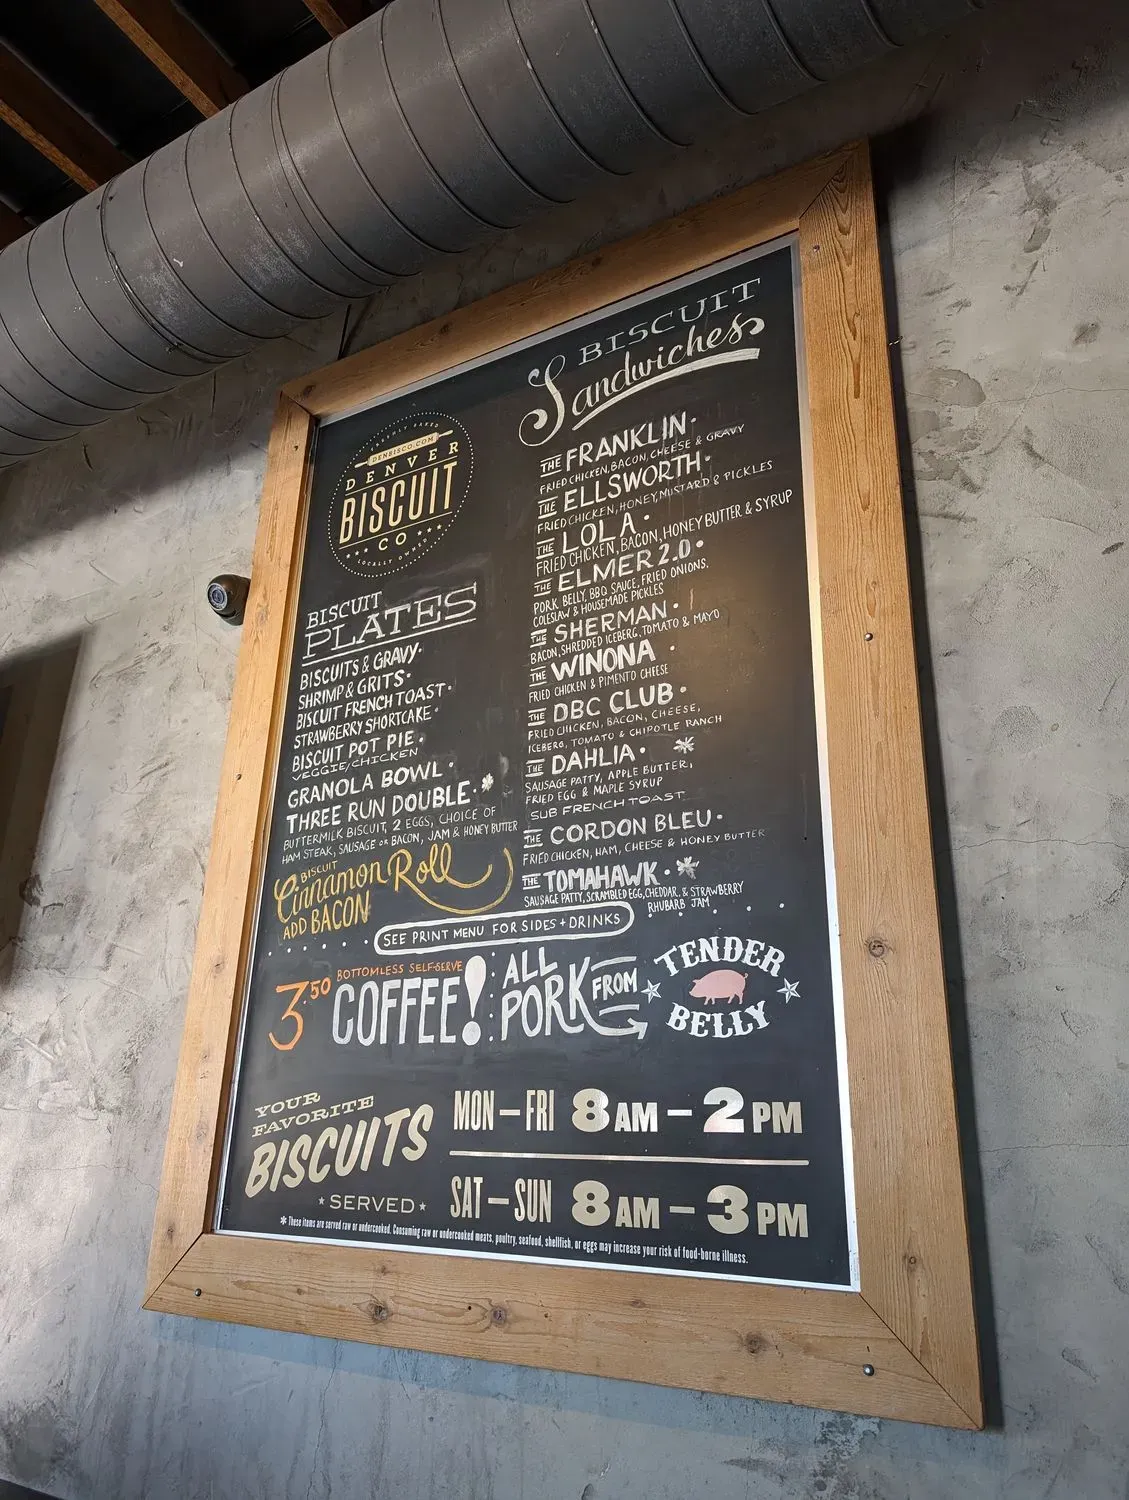 FRESHLY BAKED
DENBISCO.COM
DENVER
BISCUIT
CO
LOCALLY OWNED
BISCUIT
PLATES
BISCUITS & GRAVY·
SHRIMP & GRITS·
BISCUIT FRENCH TOAST·
STRAWBERRY SHORTCAKE·
BISCUIT POT PIE·
VEGGIE/CHICKEN
GRANOLA BOWL·
THREE RUN DOUBLE·*
BUTTERMILK BISCUIT, 2 EGGS, CHOICE OF
HAM STEAK, SAUSAGE OR BACON, JAM & HONEY BUTTER
BISCUIT
Cinnamon Roll
ADD BACON
BISCUIT
Sandwiches
THE FRANKLIN·
FRIED CHICKEN, BACON, CHEESE & GRAVY
THE ELLSWORTH·
FRIED CHICKEN, HONEY, MUSTARD & PICKLES
THE LOLA·
FRIED CHICKEN, BACON, HONEY BUTTER & SYRUP
THE ELMER 2.0·
PORK BELLY, BBQ SAUCE, FRIED ONIONS.
COLESLAW & HOUSEMADE PICKLES
THE SHERMAN·
BACON, SHREDDED ICEBERG, TOMATO & MAYO
THE WINONA·
FRIED CHICKEN & PIMENTO CHEESE
THE DBC CLUB·
FRIED CHICKEN, BACON, CHEESE,
ICEBERG, TOMATO & CHIPOTLE RANCH
THE DAHLIA· *
SAUSAGE PATTY, APPLE BUTTER,
FRIED EGG & MAPLE SYRUP
SUB FRENCH TOAST
THE CORDON BLEU·
FRIED CHICKEN, HAM, CHEESE & HONEY BUTTER
THE TOMAHAWK·*
SAUSAGE PATTY, SCRAMBLED EGG, CHEDDAR, & STRAWBERRY
RHUBARB JAM
SEE PRINT MENU FOR SIDES + DRINKS
3.50 BOTTOMLESS SELF-SERVE
COFFEE!
ALL
PORK FROM
TENDER
BELLY
YOUR
FAVORITE
BISCUITS
SERVED
MON – FRI 8 AM – 2 PM
SAT – SUN 8 AM – 3 PM
* These items are served raw or undercooked. Consuming raw or undercooked meats, poultry, seafood, shellfish, or eggs may increase your risk of food-borne illness.